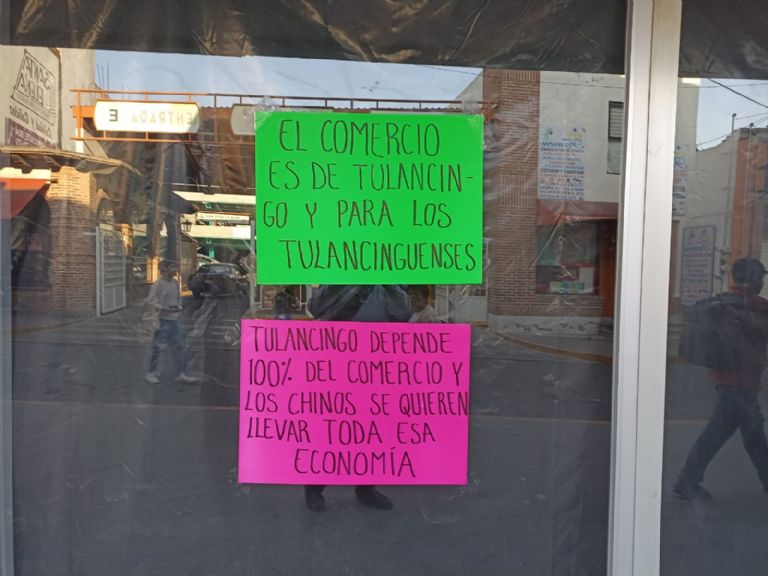 ENTRADA E
SANTA
ELENA
EL COMERCIO
ES DE TULANCIN-
GO Y PARA LOS
TULANCINGUENSES
TULANCINGO DEPENDE
100% DEL COMERCIO Y
LOS CHINOS SE QUIEREN
LLEVAR TODA ESA
ECONOMÍA